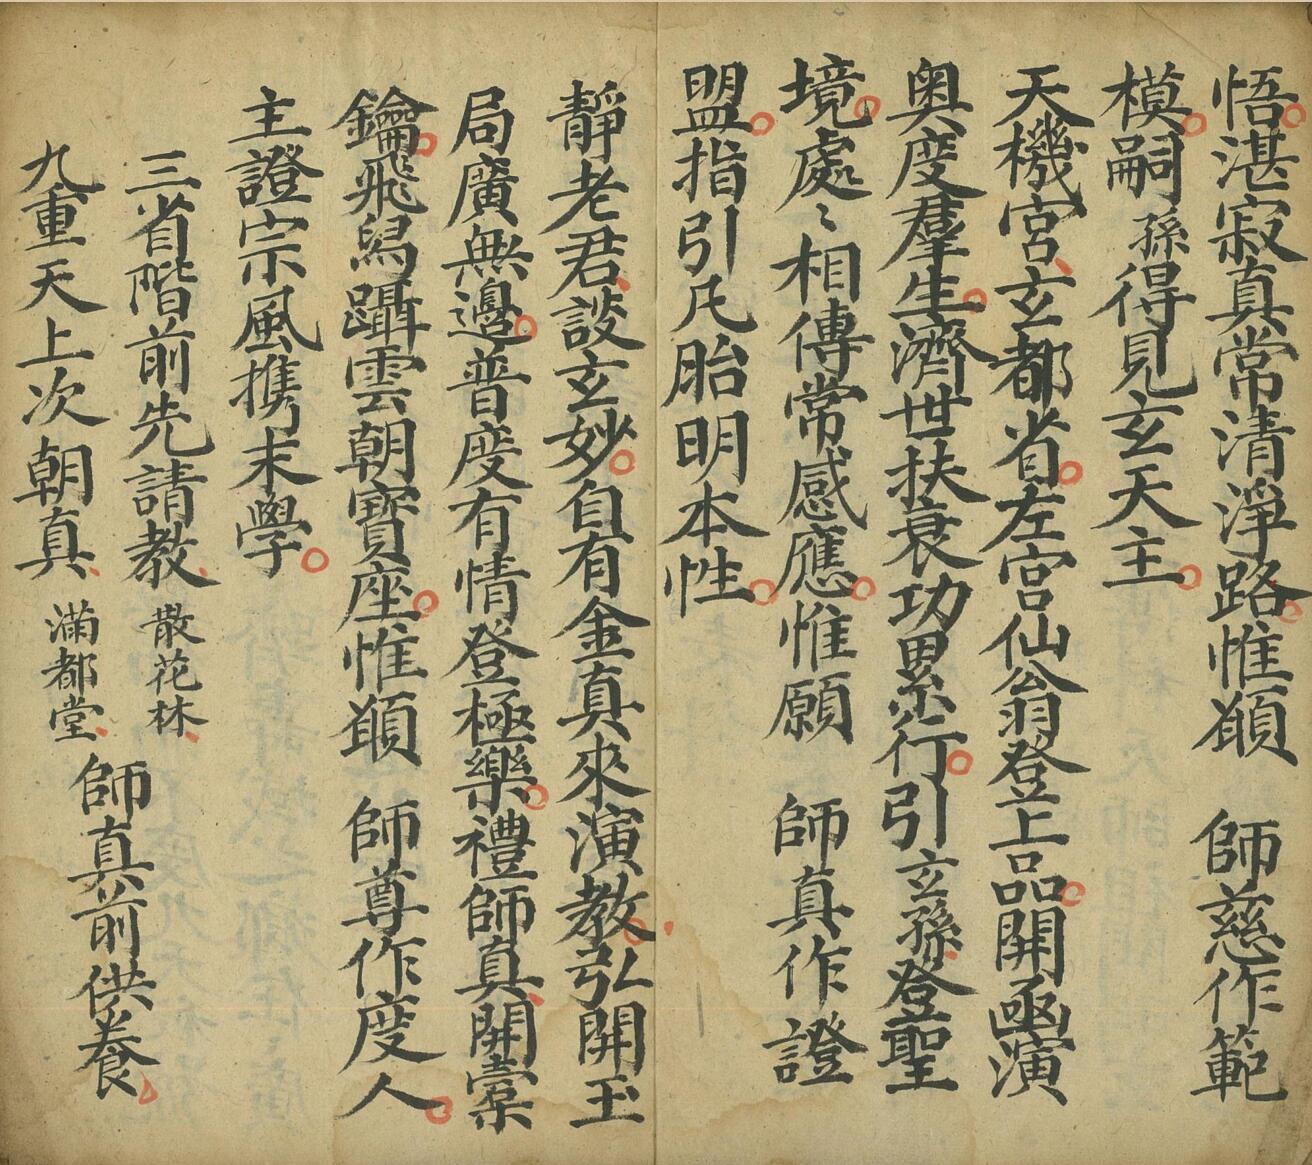 悟湛寂真常清淨路惟願 師慈作範
模嗣孫得見玄天主
天機宮玄都省左宮仙翁登上品開函演
奧度羣生濟世扶衰功累行引玄孫登聖
境處〻相傳常感應惟願 師真作證
盟指引凡胎明本性
靜老君談玄妙自有金真來演教弘開玉
局廣無邊普度有情登極樂禮師真開橐
鑰飛舄躡雲朝寶座惟願 師尊作度人
主證宗風携末學
三省階前先請教 散花林
九重天上次朝真 滿都堂
師真前供養